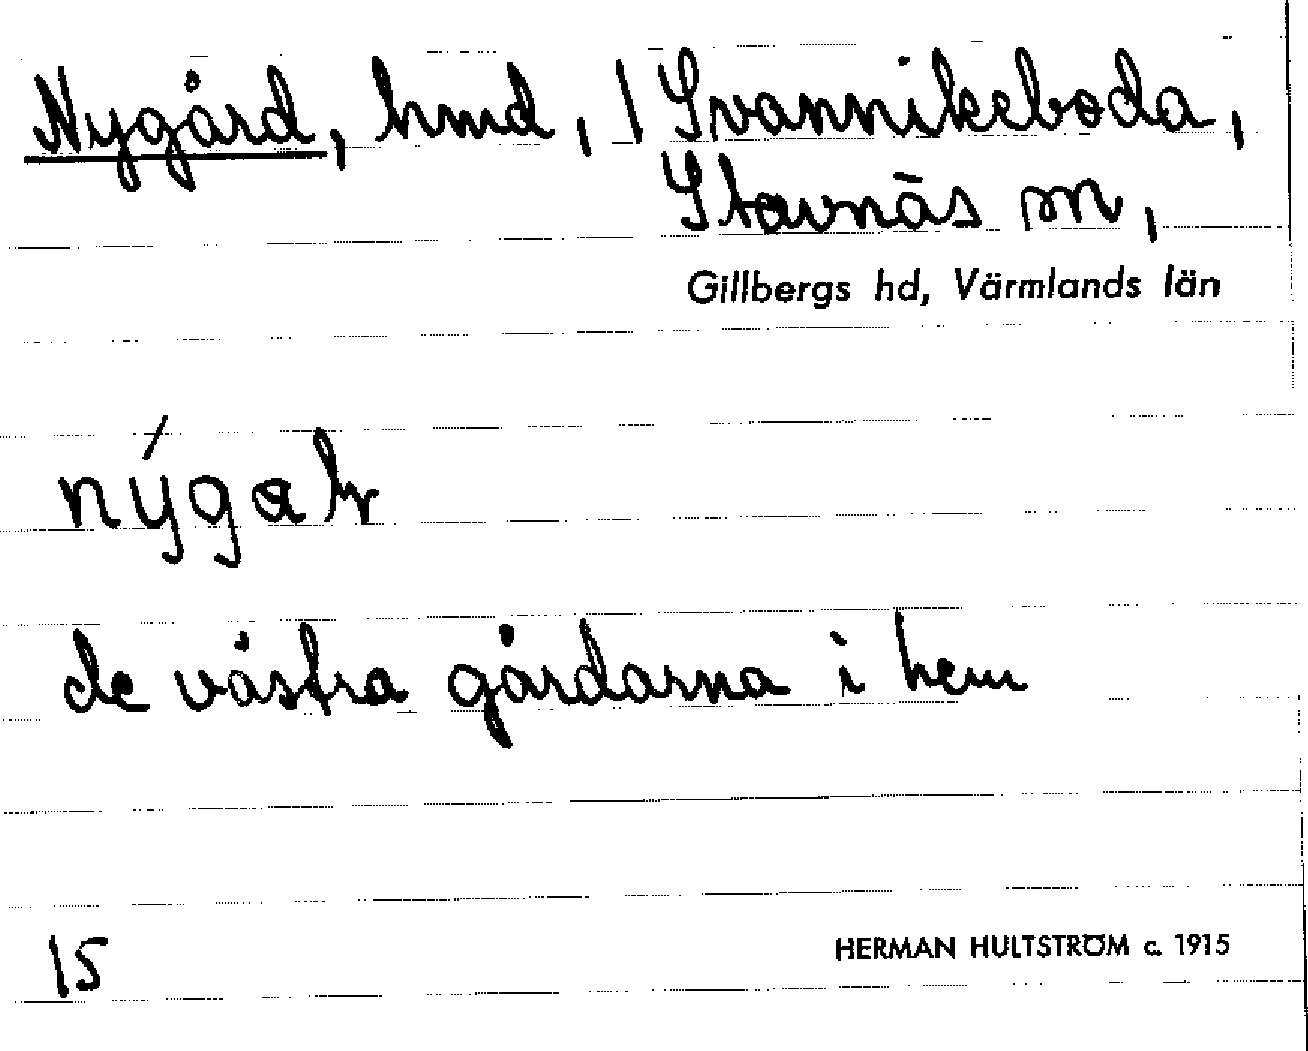 Nygård, hmd, / Svannikeboda,
Stavnäs sn,
Gillbergs hd, Värmlands län
de västra gårdarna i hem
15
HERMAN HULTSTRÖM c. 1915